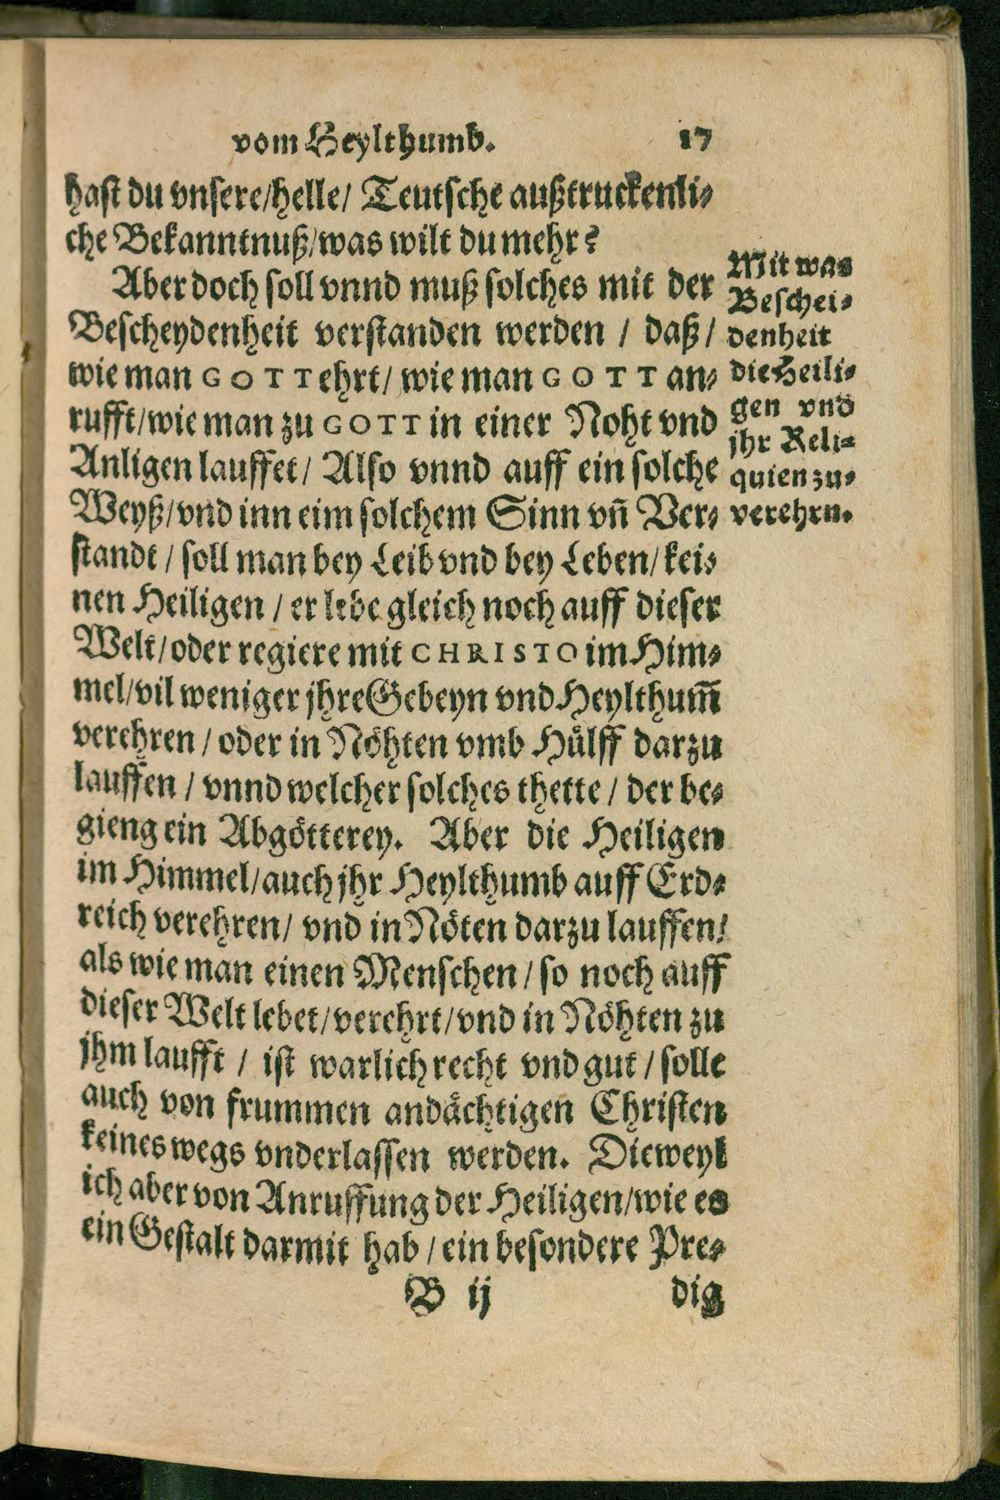 vom Heylthumb. 17
hast du vnsere/helle/ Teutsche außtruckenli⸗
che Bekanntnuß/was wilt du mehr?
Aber doch soll vnnd muß solches mit der
Bescheydenheit verstanden werden / daß/
wie man GOTT ehrt/ wie man GOTT an⸗
rufft/wie man zu GOTT in einer Noht vnd
Anligen lauffet/ Also vnnd auff ein solche
Weyß/vnd inn eim solchem Sinn vñ Ver⸗
standt / soll man bey Leib vnd bey Leben/ kei⸗
nen Heiligen / er lebe gleich noch auff dieser
Welt/oder regiere mit CHRISTO im Him⸗
mel/vil weniger jhre Gebeyn vnd Heylthum̃
verehren / oder in Nöhten vmb Hülff darzu
lauffen / vnnd welcher solches thette / der be⸗
gieng ein Abgötterey. Aber die Heiligen
im Himmel/auch jhr Heylthumb auff Erd⸗
reich verehren/ vnd in Nöten darzu lauffen/
als wie man einen Menschen / so noch auff
dieser Welt lebet/verehrt/vnd in Nöhten zu
jhm laufft / ist warlich recht vnd gut / solle
auch von frummen andächtigen Christen
keines wegs vnderlassen werden. Dieweyl
ich aber von Anruffung der Heiligen/wie es
ein Gestalt darmit hab / ein besondere Pre⸗
B ij dig
Mit was
Beschei⸗
denheit
die Heili⸗
gen vnd
jhr Reli⸗
quien zu⸗
verehrn.